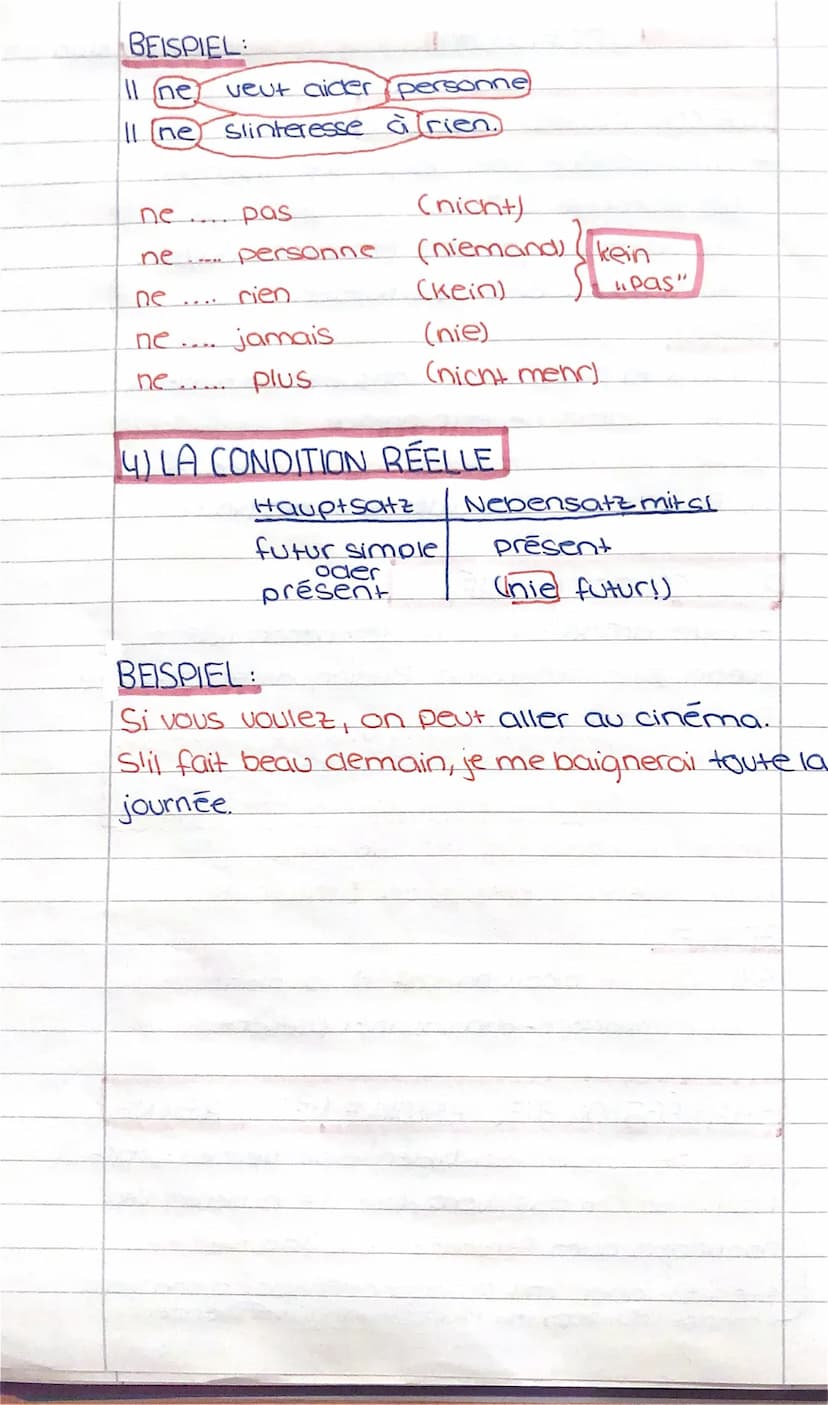 BEISPIEL:
Il ne veut aider personne
Il ne s'interesse à rien.
ne .... pas (nicht)
ne .... personne (niemand) kein
ne .... rien (kein) „pas"
ne .... jamais (nie)
ne ..... plus (nicht mehr)
4) LA CONDITION RÉELLE
Hauptsatz Nebensatz mit si
futur simple présent
oder
présent (nie futur!)
BEISPIEL:
Si vous voulez, on peut aller au cinéma.
S'il fait beau demain, je me baignerai toute la
journée.